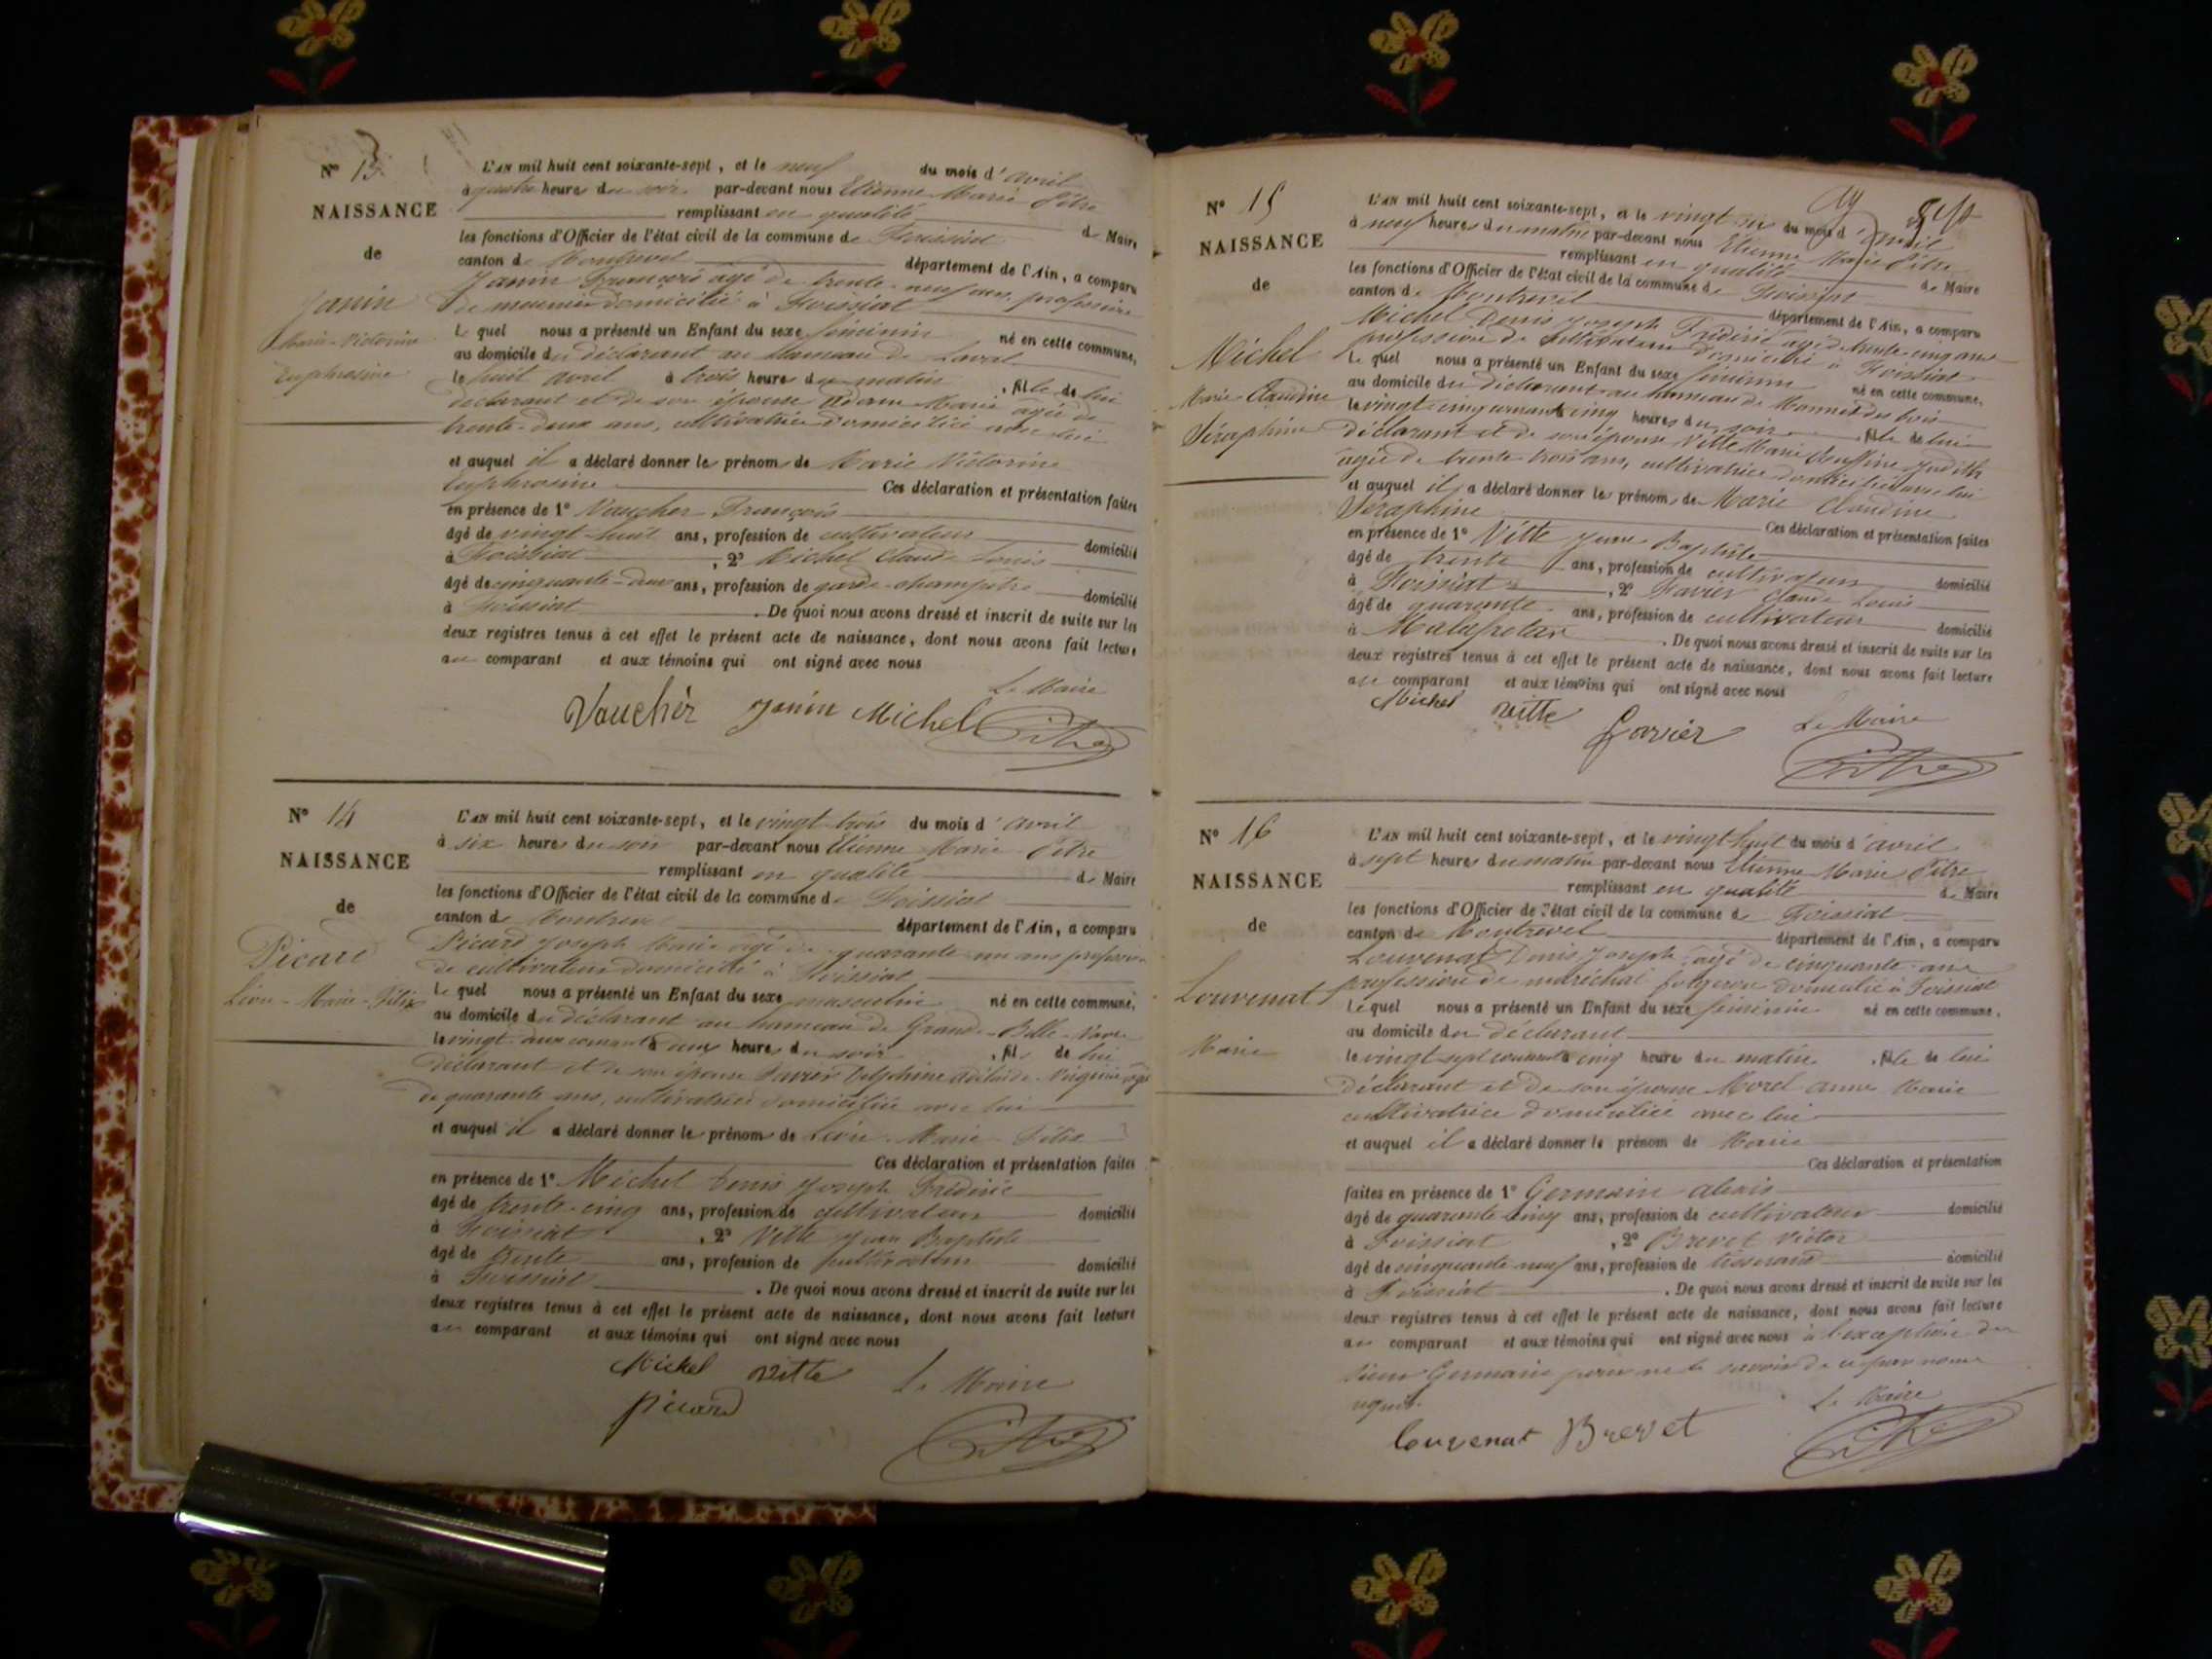 N° 13
NAISSANCE
de
Janin
Marie-Victorine
Euphrosine
L'AN mil huit cent soixante-sept, et le neuf du mois d'avril
à quatre heures du soir par-devant nous Etienne Marie Pitre
remplissant en qualité de Maire
les fonctions d'Officier de l'état civil de la commune de Foissiat
canton de Montrevel département de l'Ain, a comparu
Janin François âgé de trente-neuf ans, profession
de meunier domicilié à Foissiat
Lequel nous a présenté un Enfant du sexe féminin né en cette commune,
au domicile du déclarant au hameau de Laval
le huit avril à trois heures du matin, fille de lui
déclarant et de son épouse Adam Marie âgée de
trente-deux ans, cultivatrice domiciliée avec lui
et auquel il a déclaré donner les prénoms de Marie Victorine
Euphrosine Ces déclaration et présentation faites
en présence de 1° Vaucher François
âgé de vingt-huit ans, profession de cultivateur domicilié
à Foissiat, 2° Michel Claude Louis
âgé de cinquante-deux ans, profession de garde-champêtre domicilié
à Foissiat. De quoi nous avons dressé et inscrit de suite sur les
deux registres tenus à cet effet le présent acte de naissance, dont nous avons fait lecture
au comparant et aux témoins qui ont signé avec nous
Le Maire
Vaucher Janin Michel Pitre
N° 14
NAISSANCE
de
Picard
Léon-Marie-Félix
L'AN mil huit cent soixante-sept, et le vingt trois du mois d'avril
à six heures du soir par-devant nous Etienne Marie Pitre
remplissant en qualité de Maire
les fonctions d'Officier de l'état civil de la commune de Foissiat
canton de Montrevel département de l'Ain, a comparu
Picard Joseph Marie âgé de quarante-un ans profession
de cultivateur domicilié à Foissiat
Lequel nous a présenté un Enfant du sexe masculin né en cette commune,
au domicile du déclarant au hameau de Grande-Belle-Vavre
le vingt-deux courant à onze heures du soir, fils de lui
déclarant et de son épouse Favier Delphine Adélaïde Virginie âgée
de quarante ans, cultivatrice domiciliée avec lui
et auquel il a déclaré donner les prénoms de Léon-Marie-Félix
Ces déclaration et présentation faites
en présence de 1° Michel Denis Joseph Frédéric
âgé de trente-cinq ans, profession de cultivateur domicilié
à Foissiat, 2° Vitte Jean Baptiste
âgé de trente ans, profession de cultivateur domicilié
à Foissiat. De quoi nous avons dressé et inscrit de suite sur les
deux registres tenus à cet effet le présent acte de naissance, dont nous avons fait lecture
au comparant et aux témoins qui ont signé avec nous
Michel Vitte Le Maire
picard
Pitre
N° 15
NAISSANCE
de
Michel
Marie-Claudine
Séraphine
L'AN mil huit cent soixante-sept, et le vingt six du mois d'avril
à neuf heures du matin par-devant nous Etienne Marie Pitre
remplissant en qualité de Maire
les fonctions d'Officier de l'état civil de la commune de Foissiat
canton de Montrevel département de l'Ain, a comparu
Michel Denis Joseph Frédéric âgé de trente-cinq ans
profession de cultivateur domicilié à Foissiat
Lequel nous a présenté un Enfant du sexe féminin né en cette commune,
au domicile du déclarant au hameau de des bois
le vingt-cinq courant à cinq heures du soir, fille de lui
déclarant et de son épouse Vitte Marie Judith
âgée de trente-trois ans, cultivatrice domiciliée avec lui
et auquel il a déclaré donner les prénoms de Marie Claudine
Séraphine Ces déclaration et présentation faites
en présence de 1° Vitte Jean Baptiste
âgé de trente ans, profession de cultivateur domicilié
à Foissiat, 2° Favier Claude Louis
âgé de quarante ans, profession de cultivateur domicilié
à Malafretaz. De quoi nous avons dressé et inscrit de suite sur les
deux registres tenus à cet effet le présent acte de naissance, dont nous avons fait lecture
au comparant et aux témoins qui ont signé avec nous
Michel Vitte Le Maire
favier
Pitre
N° 16
NAISSANCE
de
Louvenat
Marie
L'AN mil huit cent soixante-sept, et le vingt-huit du mois d'avril
à sept heures du matin par-devant nous Etienne Marie Pitre
remplissant en qualité de Maire
les fonctions d'Officier de l'état civil de la commune de Foissiat
canton de Montrevel département de l'Ain, a comparu
Louvenat Denis Joseph, âgé de cinquante ans
profession de maréchal forgeron domicilié à Foissiat
Lequel nous a présenté un Enfant du sexe féminin né en cette commune,
au domicile du déclarant
le vingt-sept courant à cinq heures du matin, fille de lui
déclarant et de son épouse Morel anne Marie
cultivatrice domiciliée avec lui
et auquel il a déclaré donner le prénom de Marie
Ces déclaration et présentation
faites en présence de 1° Germain alexis
âgé de quarante cinq ans, profession de cultivateur domicilié
à Foissiat, 2° Brevet Victor
âgé de cinquante-neuf ans, profession de tisserand domicilié
à Foissiat. De quoi nous avons dressé et inscrit de suite sur les
deux registres tenus à cet effet le présent acte de naissance, dont nous avons fait lecture
au comparant et aux témoins qui ont signé avec nous à l'exception du
sieur Germain pour ne le savoir de ce par nous
requis.
Le Maire
louvenat Brevet Pitre